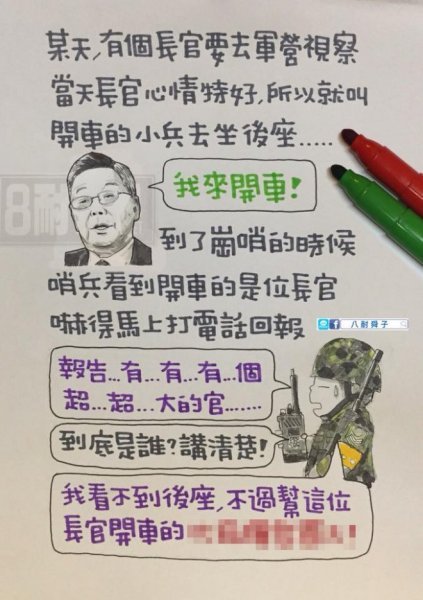 某天,有個長官要去軍營視察
當天長官心情特好,所以就叫
開車的小兵去坐後座.....
我來開車!
到了崗哨的時候
哨兵看到開車的是位長官
嚇得馬上打電話回報
八耐舜子
報告...有...有...有...個
超...超...大的官.......
到底是誰?講清楚!
我看不到後座,不過幫這位
長官開車的